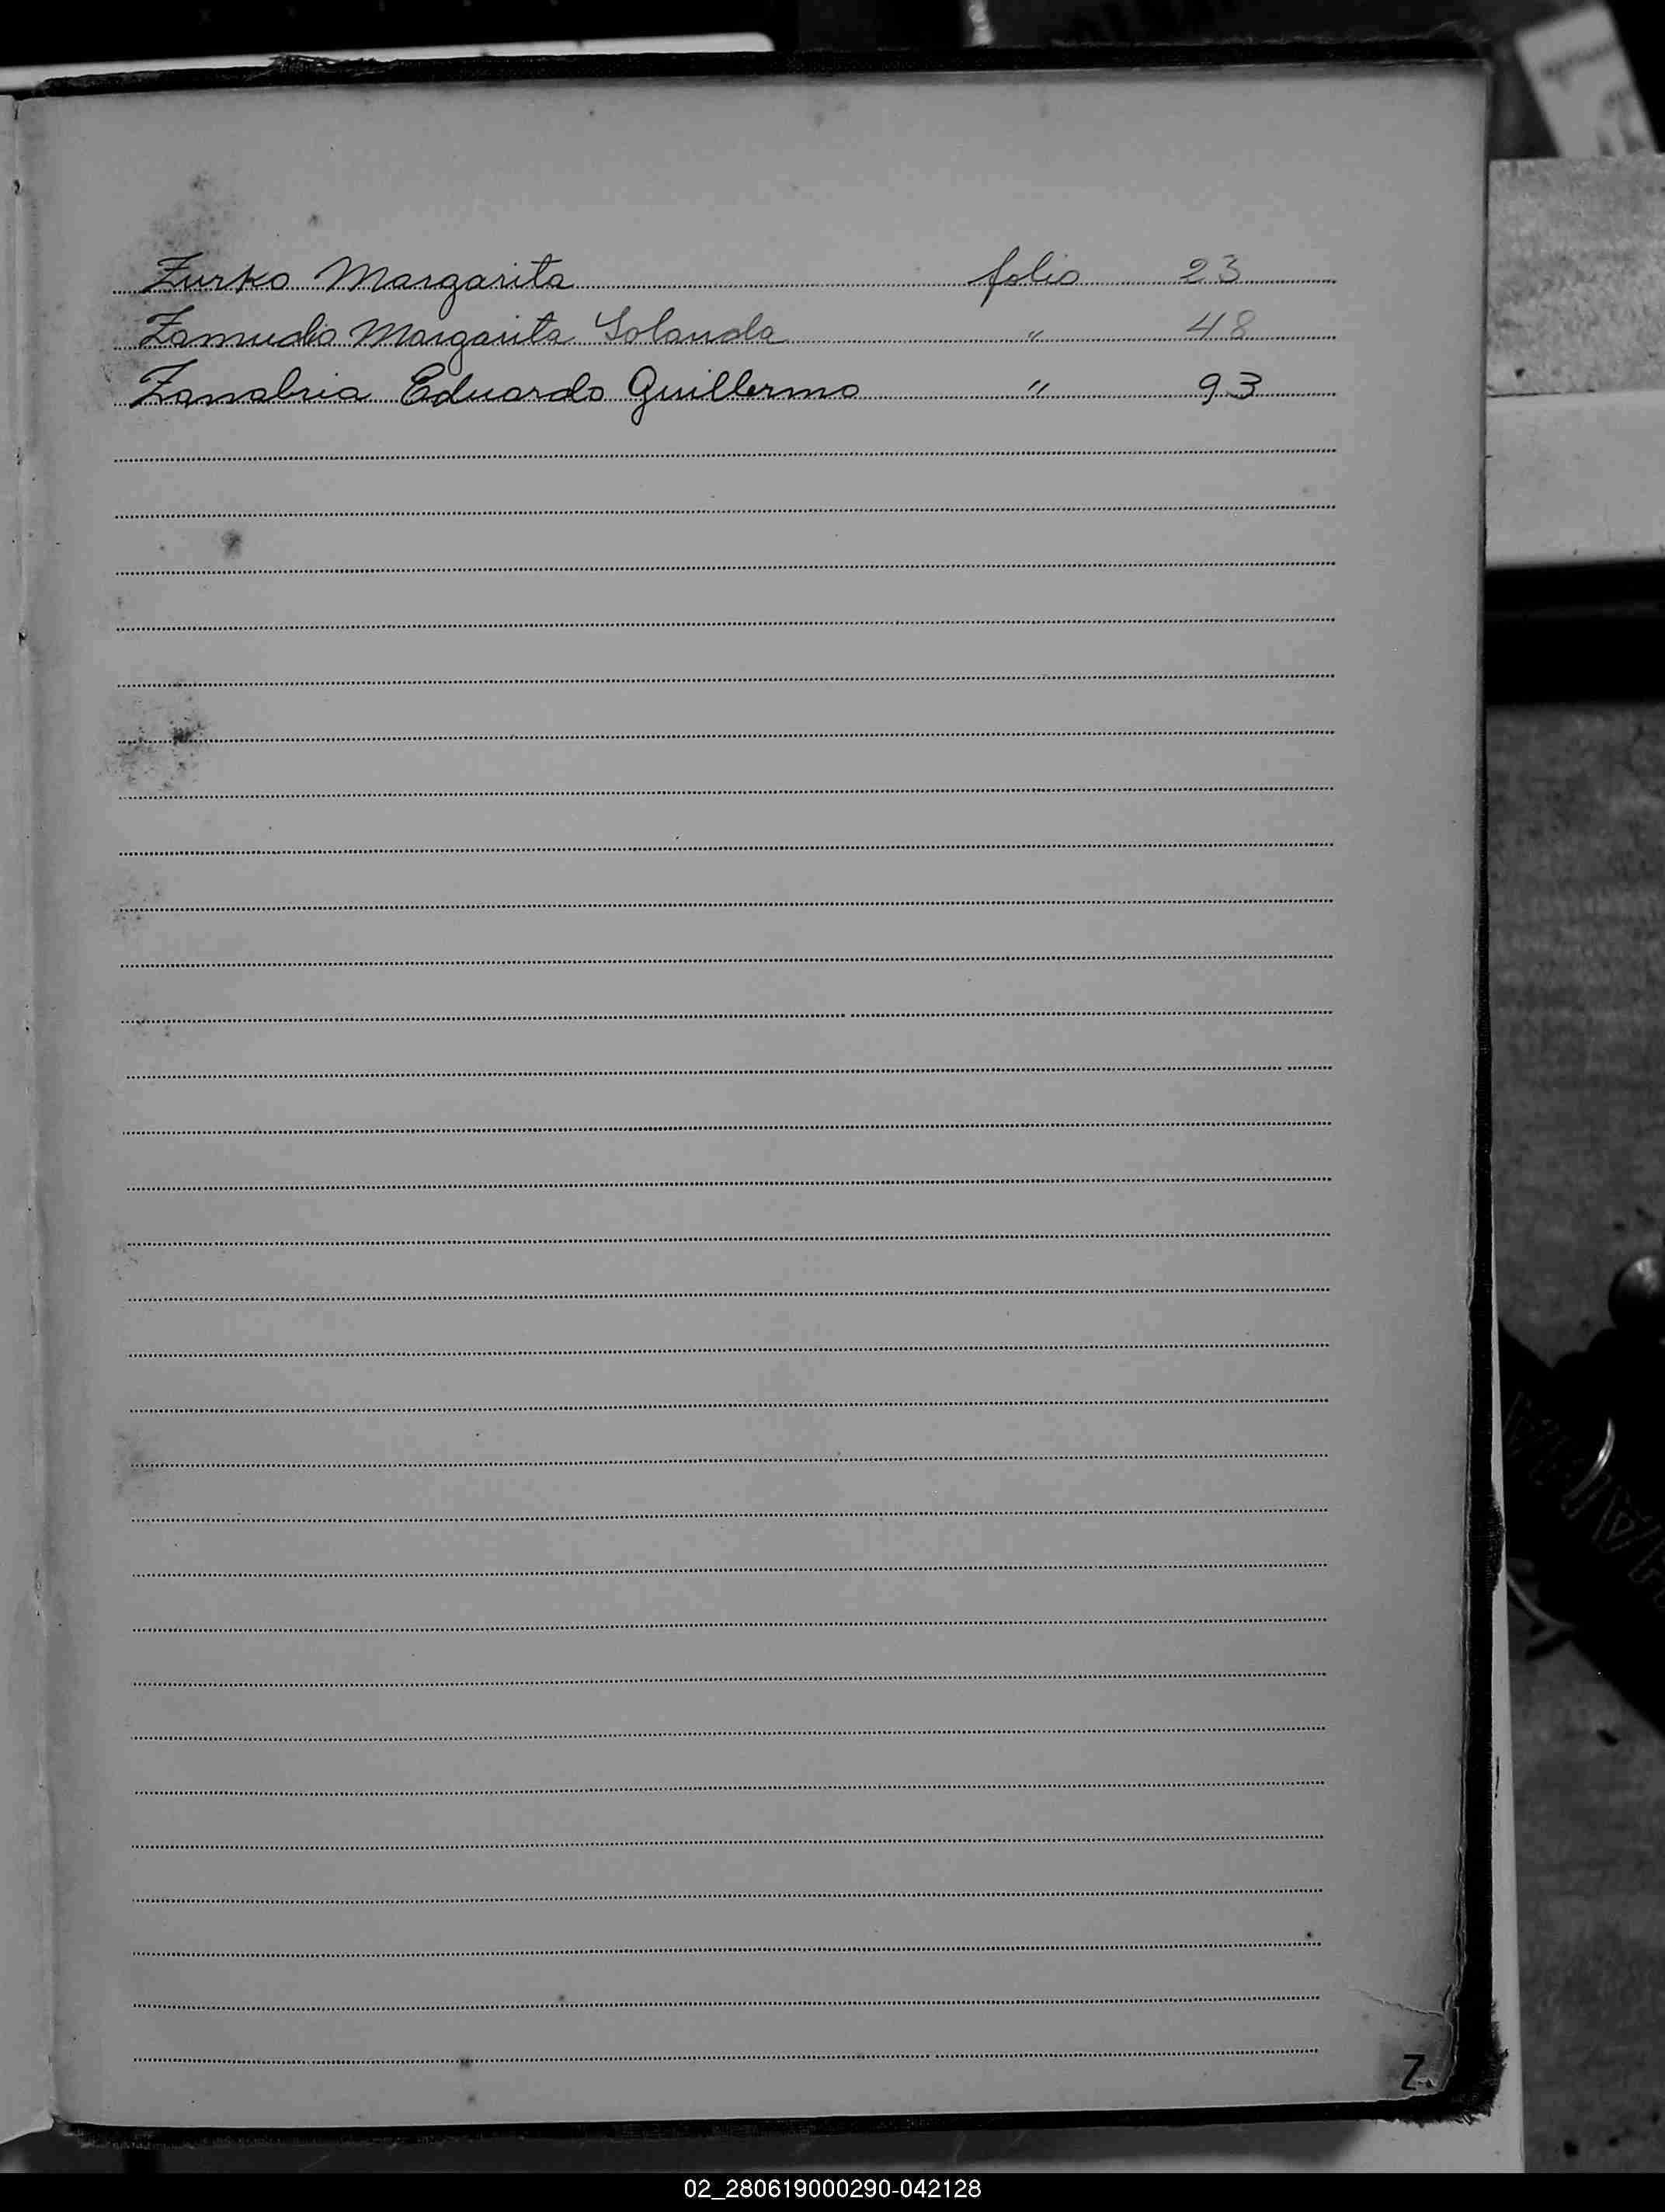 Zurko Margarita folio 23
Zamudio Margarita Yolanda " 48
Zanabria Eduardo Guillermo " 93
Z.
02_280619000290-042128